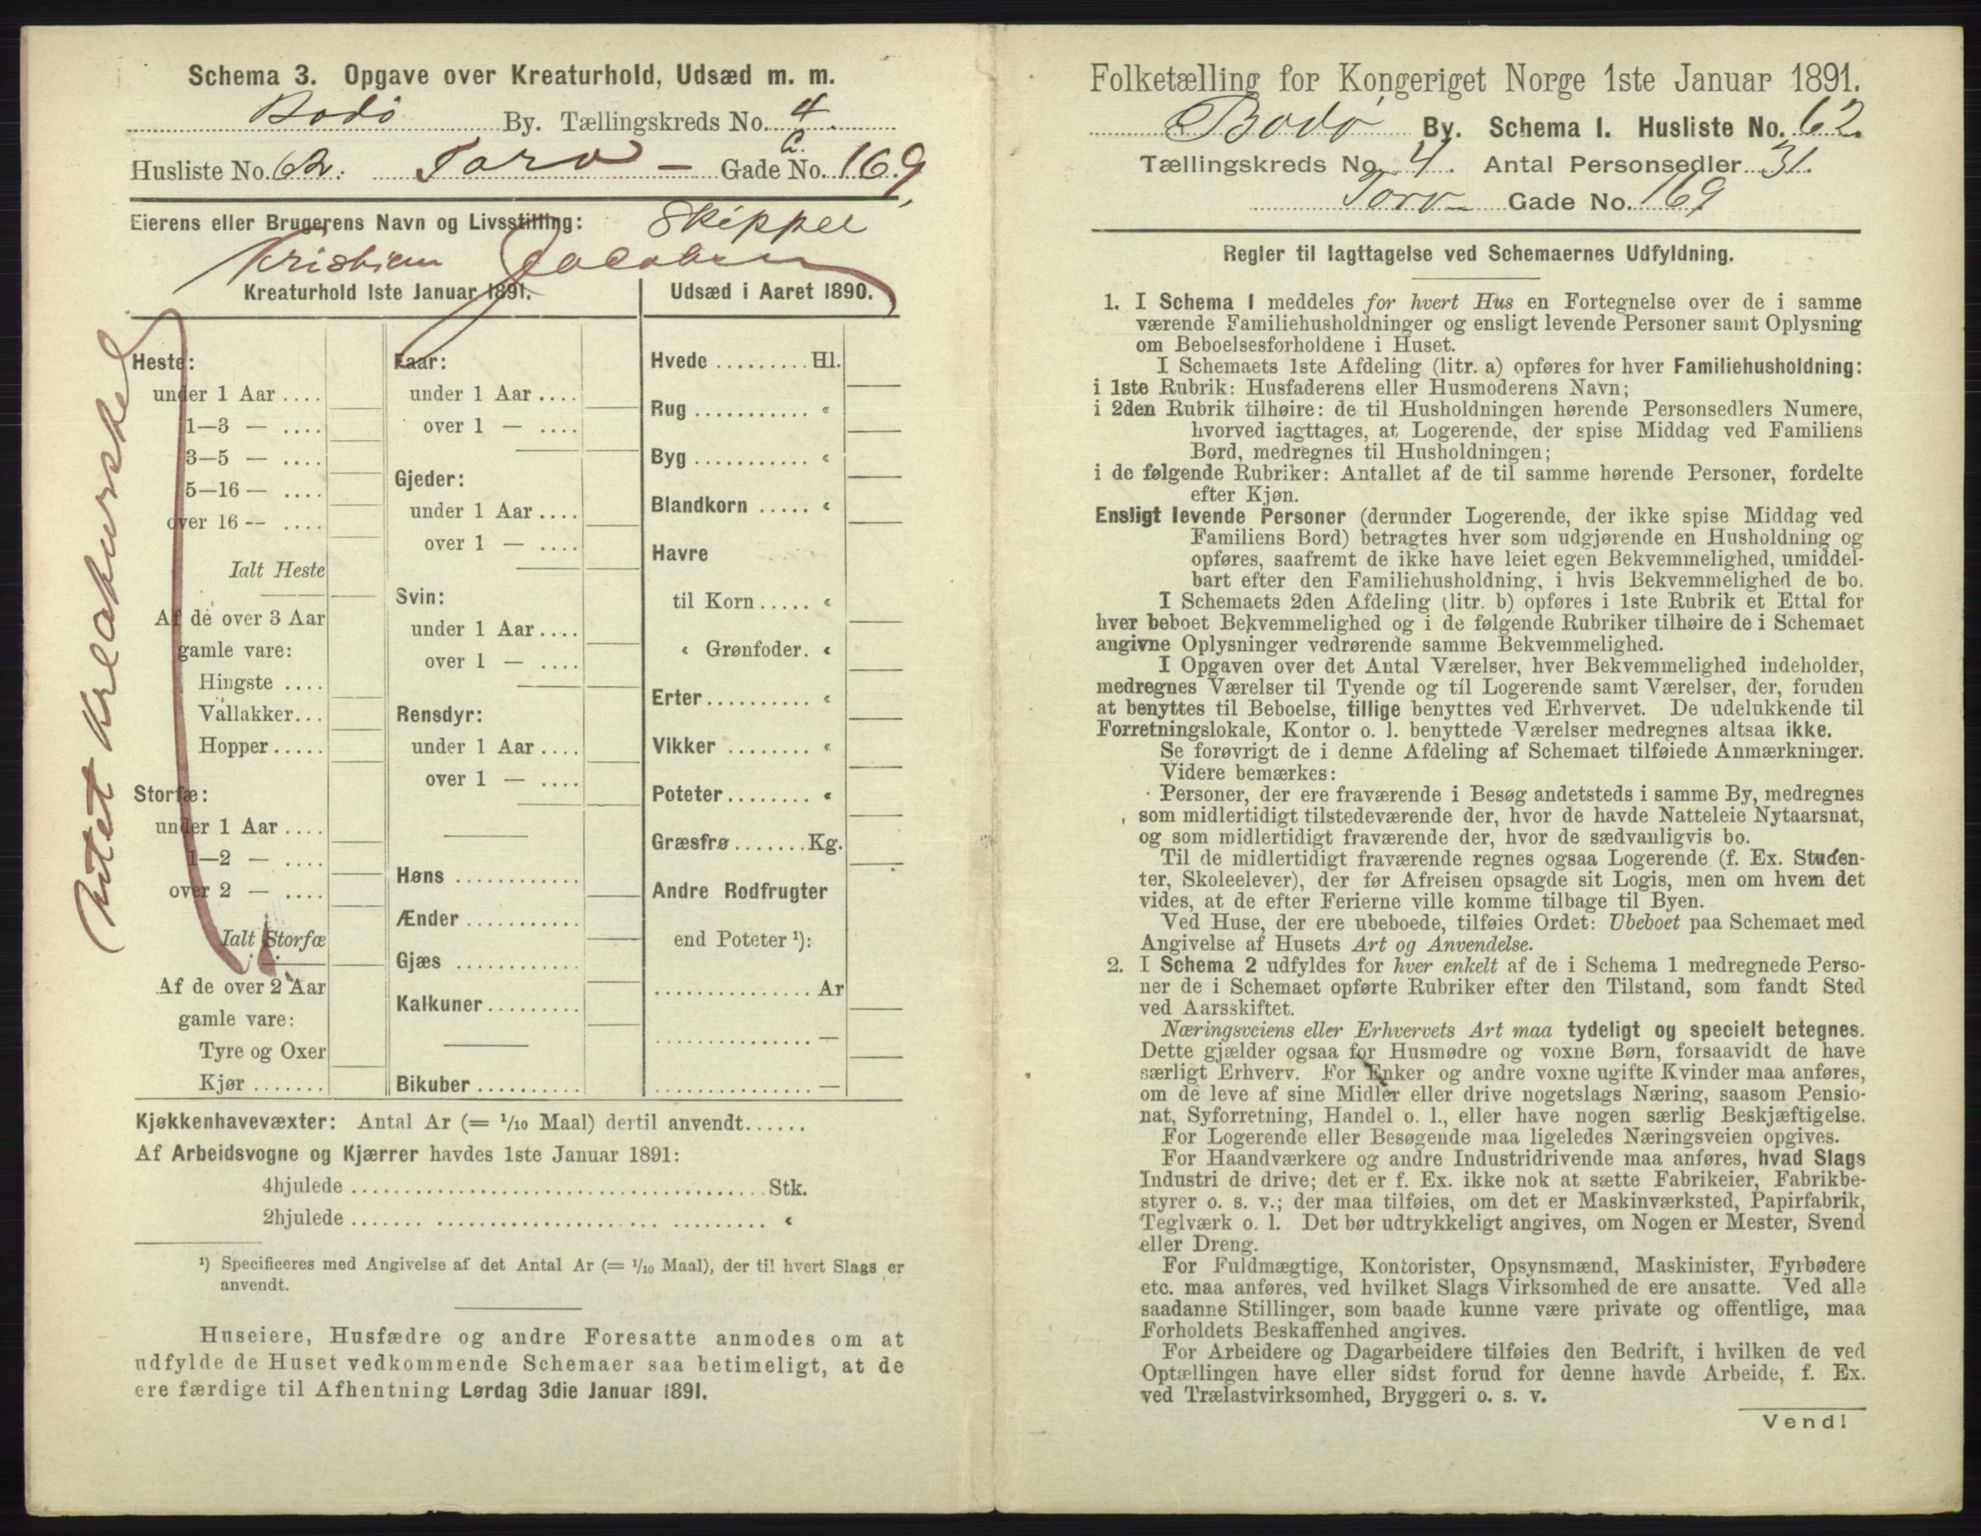 Schema 3. Opgave over Kreaturhold, Udsæd m. m.
Bodø By. Tællingskreds No. 4.
Husliste No. 62. Torv - Gade No. 169,
Eierens eller Brugerens Navn og Livsstilling: Skipper
Kristian Jacobsen
Kreaturhold 1ste Januar 1891.
Heste:
under 1 Aar ....
1—3 — ....
3—5 — ....
5—16 — ....
over 16 -- ....
Ialt Heste
Af de over 3 Aar
gamle vare:
Hingste ....
Vallakker...
Hopper .....
Storfæ:
under 1 Aar ....
1—2 — ....
over 2 — ....
Ialt Storfæ
Af de over 2 Aar
gamle vare:
Tyre og Oxer
Kjør .......
Intet Kreaturhold
Faar:
under 1 Aar ....
over 1 — ....
Gjeder:
under 1 Aar ....
over 1 — ....
Svin:
under 1 Aar ....
over 1 — ....
Rensdyr:
under 1 Aar ....
over 1 — ....
Høns ............
Ænder ...........
Gjæs ............
Kalkuner .........
Bikuber ..........
Udsæd i Aaret 1890.
Hvede ......... Hl.
Rug ........... «
Byg ........... «
Blandkorn ..... «
Havre
til Korn ..... «
« Grønfoder. «
Erter .......... «
Vikker ........ «
Poteter ........ «
Græsfrø ....... Kg.
Andre Rodfrugter
end Poteter ¹):
............... Ar
............... —
............... —
Kjøkkenhavevæxter: Antal Ar (= 1/10 Maal) dertil anvendt......
Af Arbeidsvogne og Kjærrer havdes 1ste Januar 1891:
4hjulede ....................................... Stk.
2hjulede ....................................... «
¹) Specificeres med Angivelse af det Antal Ar (= 1/10 Maal), der til hvert Slags er
anvendt.
Huseiere, Husfædre og andre Foresatte anmodes om at
udfylde de Huset vedkommende Schemaer saa betimeligt, at de
ere færdige til Afhentning Lørdag 3die Januar 1891.
Folketælling for Kongeriget Norge 1ste Januar 1891.
Bodø By. Schema I. Husliste No. 62.
Tællingskreds No. 4. Antal Personsedler 31.
Torv- Gade No. 169
Regler til Iagttagelse ved Schemaernes Udfyldning.
1. I Schema 1 meddeles for hvert Hus en Fortegnelse over de i samme
værende Familiehusholdninger og ensligt levende Personer samt Oplysning
om Beboelsesforholdene i Huset.
I Schemaets 1ste Afdeling (litr. a) opføres for hver Familiehusholdning:
i 1ste Rubrik: Husfaderens eller Husmoderens Navn;
i 2den Rubrik tilhøire: de til Husholdningen hørende Personsedlers Numere,
hvorved iagttages, at Logerende, der spise Middag ved Familiens
Bord, medregnes til Husholdningen;
i de følgende Rubriker: Antallet af de til samme hørende Personer, fordelte
efter Kjøn.
Ensligt levende Personer (derunder Logerende, der ikke spise Middag ved
Familiens Bord) betragtes hver som udgjørende en Husholdning og
opføres, saafremt de ikke have leiet egen Bekvemmelighed, umiddel-
bart efter den Familiehusholdning, i hvis Bekvemmelighed de bo.
I Schemaets 2den Afdeling (litr. b) opføres i 1ste Rubrik et Ettal for
hver beboet Bekvemmelighed og i de følgende Rubriker tilhøire de i Schemaet
angivne Oplysninger vedrørende samme Bekvemmelighed.
I Opgaven over det Antal Værelser, hver Bekvemmelighed indeholder,
medregnes Værelser til Tyende og til Logerende samt Værelser, der, foruden
at benyttes til Beboelse, tillige benyttes ved Erhvervet. De udelukkende til
Forretningslokale, Kontor o. l. benyttede Værelser medregnes altsaa ikke.
Se forøvrigt de i denne Afdeling af Schemaet tilføiede Anmærkninger.
Videre bemærkes:
Personer, der ere fraværende i Besøg andetsteds i samme By, medregnes
som midlertidigt tilstedeværende der, hvor de havde Natteleie Nytaarsnat,
og som midlertidigt fraværende der, hvor de sædvanligvis bo.
Til de midlertidigt fraværende regnes ogsaa Logerende (f. Ex. Studen-
ter, Skoleelever), der før Afreisen opsagde sit Logis, men om hvem det
vides, at de efter Ferierne ville komme tilbage til Byen.
Ved Huse, der ere ubeboede, tilføies Ordet: Ubeboet paa Schemaet med
Angivelse af Husets Art og Anvendelse.
2. I Schema 2 udfyldes for hver enkelt af de i Schema 1 medregnede Perso-
ner de i Schemaet opførte Rubriker efter den Tilstand, som fandt Sted
ved Aarsskiftet.
Næringsveiens eller Erhvervets Art maa tydeligt og specielt betegnes.
Dette gjælder ogsaa for Husmødre og voxne Børn, forsaavidt de have
særligt Erhverv. For Enker og andre voxne ugifte Kvinder maa anføres,
om de leve af sine Midler eller drive nogetslags Næring, saasom Pensio-
nat, Syforretning, Handel o. l., eller have nogen særlig Beskjæftigelse.
For Logerende eller Besøgende maa ligeledes Næringsveien opgives.
For Haandværkere og andre Industridrivende maa anføres, hvad Slags
Industri de drive; det er f. Ex. ikke nok at sætte Fabrikeier, Fabrikbe-
styrer o. s. v.; der maa tilføies, om det er Maskinværksted, Papirfabrik,
Teglværk o. l. Det bør udtrykkeligt angives, om Nogen er Mester, Svend
eller Dreng.
For Fuldmægtige, Kontorister, Opsynsmænd, Maskinister, Fyrbødere
etc. maa anføres, ved hvilket Slags Virksomhed de ere ansatte. Ved alle
saadanne Stillinger, som baade kunne være private og offentlige, maa
Forholdets Beskaffenhed angives.
For Arbeidere og Dagarbeidere tilføies den Bedrift, i hvilken de ved
Optællingen have eller sidst forud for denne havde Arbeide, f. Ex.
ved Trælastvirksomhed, Bryggeri o. s. v.
Vend!